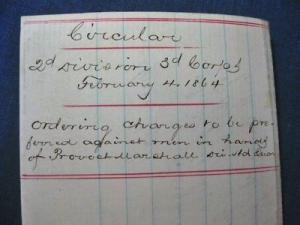 Circular
2d Division 3d Corps
February 4, 1864
ordering charges to be pre-
ferred against men in hands
of Provost Marshall Div.